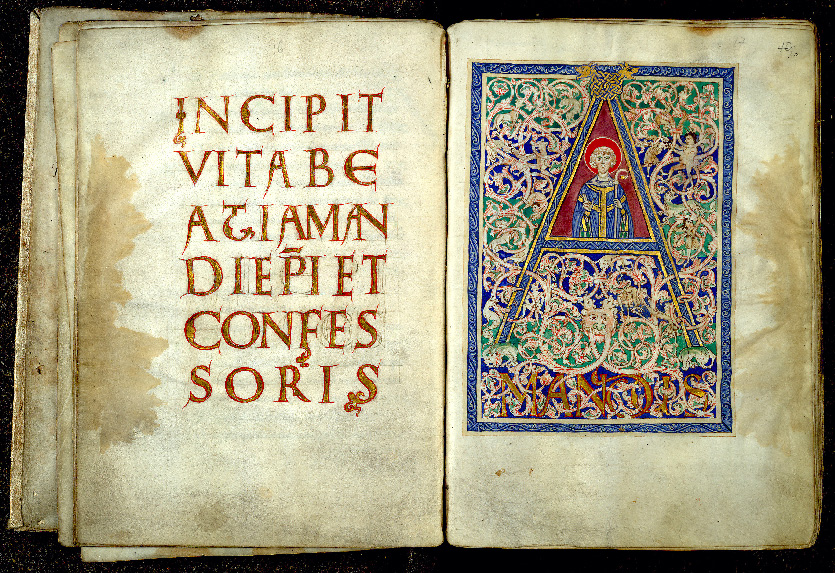 INCIPIT
VITA BE
ATI AMAN
DI EP̃I ET
CONFES
SORIS
A
MANDUS